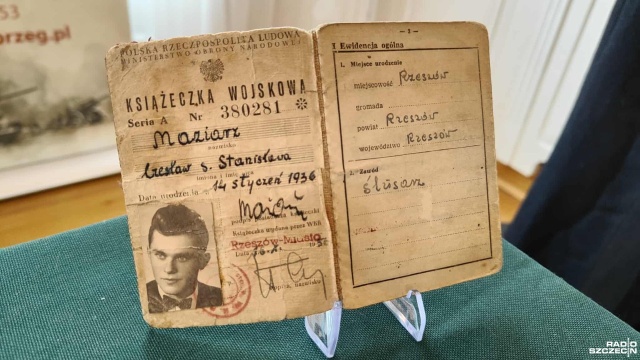 53
rzeg.pl
POLSKA RZECZPOSPOLITA LUDOWA
MINISTERSTWO OBRONY NARODOWEJ
KSIĄŻECZKA WOJSKOWA
Seria A Nr 380281
Maziarz
nazwisko
Czesław s. Stanisława
imiona i imię ojca
Data urodzenia 14 styczeń 1936
podpis
Książeczka wydana przez WKR
Rzeszów-Miasto
Data
- 3 -
I Ewidencja ogólna
1. Miejsce urodzenia
miejscowość Rzeszów
gromada
powiat Rzeszów
województwo Rzeszów
2. Zawód
ślusarz
RADIO
SZCZECIN